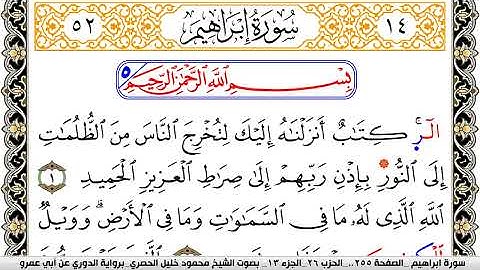 ١٤ سُورَةُ إِبْرَاهِيمَ ٥٢
بِسْمِ اللَّهِ الرَّحْمَٰنِ الرَّحِيمِ ٥
الٓر كِتَابٌ أَنزَلْنَاهُ إِلَيْكَ لِتُخْرِجَ النَّاسَ مِنَ الظُّلُمَاتِ
إِلَى النُّورِ بِإِذْنِ رَبِّهِمْ إِلَى صِرَاطِ الْعَزِيزِ الْحَمِيدِ ١
اللَّهِ الَّذِى لَهُ مَا فِى السَّمَاوَاتِ وَمَا فِى الْأَرْضِ وَوَيْلٌ
سورة ابراهيم _الصفحة ٢٥٥_.. الحزب ٢٦_الجزء ١٣_ بصوت الشيخ محمود خليل الحصري_برواية الدوري عن أبي عمرو